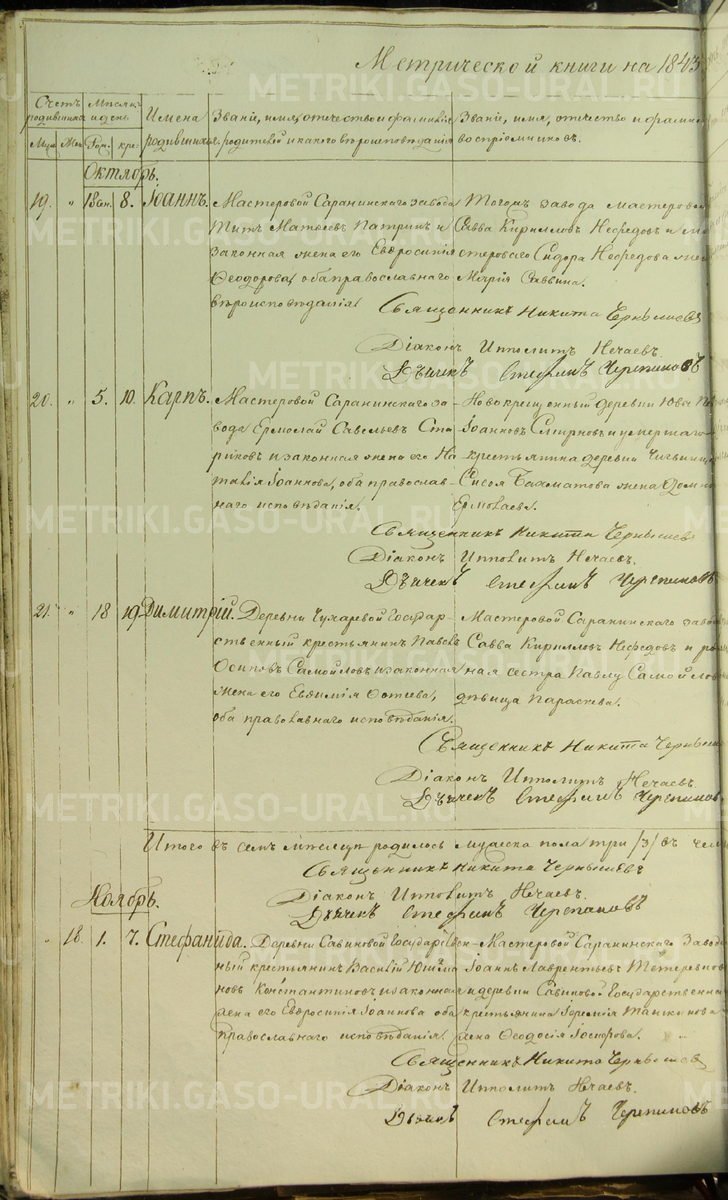 Метрической книги на 1843
Счетъ родившихся
Мѣсяцъ и день
Имена родившихся.
Званіе, имя, отечество и фамилія родителей и какого вѣроисповѣданія
Званіе, имя, отечество и фамилія воспріемниковъ.
Муж. Жен. Рож. кре.
Октябрь.
19. „ 18 Сен. 8. Іоаннъ.
Мастеровой Саранинскаго завода
Титъ Матвеевъ Патринъ и
законная жена его Евфросинія
Ѳеодорова, оба православнаго
вѣроисповѣданія.
Тогожъ завода мастеровой
Савва Кириловъ Нефедовъ и ма
стероваго Сидора Нефедова жена
Марія Саввина.
Священникъ Никита Чернышевъ
Діаконъ Ипполитъ Нечаевъ.
Дьячекъ Стефанъ Черепановъ
20. „ 5. 10. Карпъ.
Мастеровой Саранинскаго за-
вода Ермолай Савельевъ Ста-
риковъ и законная жена его На-
талія Іоаннова, оба православ-
наго исповѣданія.
Новокрещенный деревни Юва
Іоанновъ Смирновъ и умершаго
крестьянина деревни
Сысоя Бахматова жена Домна
Ермолаева.
Священникъ Никита Чернышевъ
Діаконъ Ипполитъ Нечаевъ.
Дьячекъ Стефанъ Черепановъ
21. „ 18 19. Димитрій.
Деревни Чумаревой Государ-
ственный крестьянинъ Павелъ
Осиповъ Самойловъ и законная
жена его Евфимія Фотеева,
оба православнаго исповѣданія.
Мастеровой Саранинскаго завода
Савва Кириловъ Нефедовъ и род
ная сестра Павлу Самойлову
дѣвица Параскева.
Священникъ Никита Чернышев
Діаконъ Ипполитъ Нечаевъ
Дьячекъ Стефанъ Черепанов
Итого въ семъ мѣсяцѣ родилось мужеска пола три /3/ въ чемъ
Священникъ Никита Чернышевъ
Діаконъ Ипполитъ Нечаевъ.
Дьячекъ Стефанъ Черепановъ
Ноябрь.
„ 18. 1. 7. Стефанида.
Деревни Савиновой Государствен-
ный крестьянинъ Василій
новъ Константиновъ и законная
жена его Евфросинія Іоаннова оба
православнаго исповѣданія.
Мастеровой Саранинскаго Завода
Іоаннъ Лаврентьевъ Тетеревковъ
и деревни Савиновой Государственна
крестьянина Іеремія
жена Ѳеодосія Іосифова.
Священникъ Никита Чернышевъ
Діаконъ Ипполитъ Нечаевъ.
Дьячекъ Стефанъ Черепановъ
METRIKI.GASO-URAL.RU